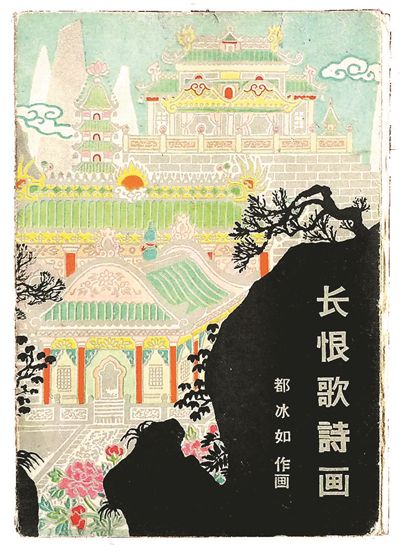 长恨歌詩画
都冰如 作画